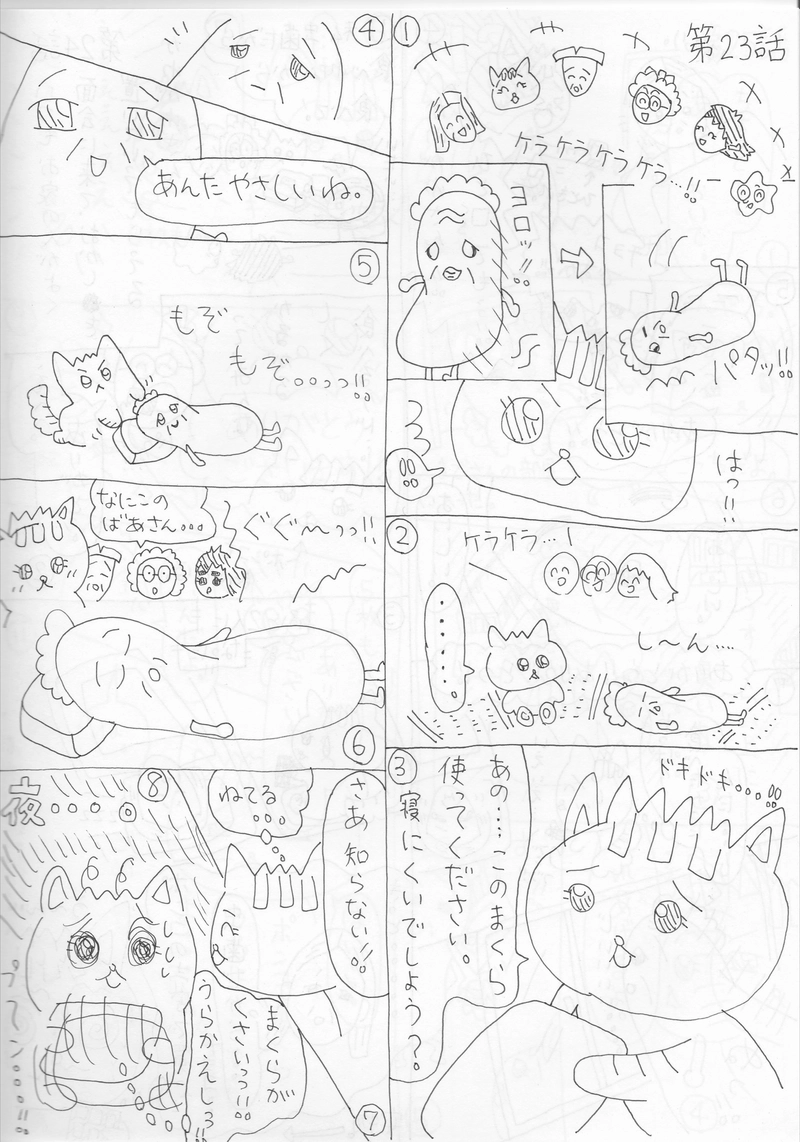 第23話
①
ケラケラケラケラ…!!
ヨロッ!!
パタッ!!
はっ!!
②
ケラケラ…!
……。
し〜ん….
③
ドキドキ…!!
あの…このまくら
使ってください。
寝にくいでしょう??
④
あんたやさしいね。
⑤
もぞ
もぞ。。っっ!!
⑥
なにこの
ばあさん…
ぐぐ〜っっ!!
⑦
さあ知らない!!
ねてる
…
⑧
夜。。。。
まくらが
くさいっっ!!
うらかえしろ!!
プ〜ン。。。!!